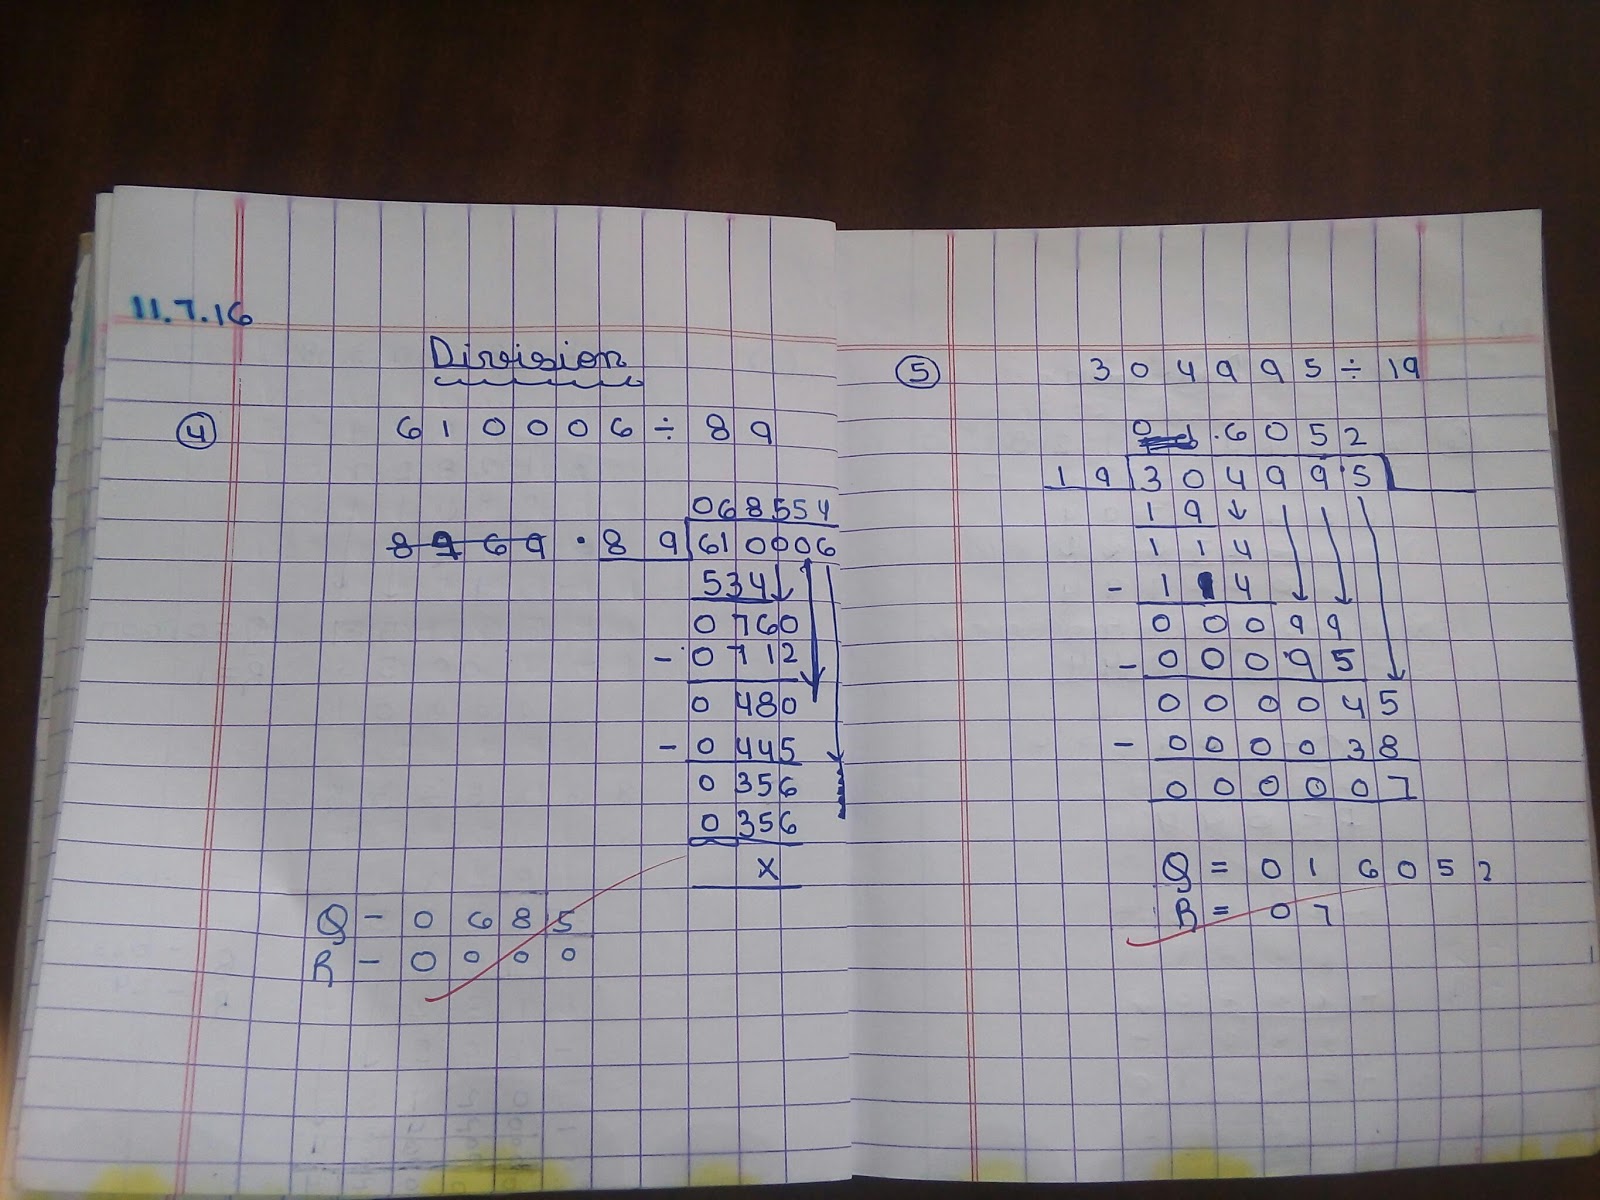 11.7.16
Division
4 610006 ÷ 89
068554
8969 . 89 610006
534
0760
- 0712
0480
- 0445
0356
0356
x
Q - 0685
R - 0000
5 304995 ÷ 19
0 .6052
19 304995
19
114
- 114
00099
- 00095
000045
- 000038
000007
Q = 016052
R = 07